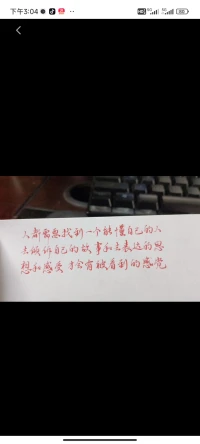 下午3:04
人都需想找到一个能懂自己的人
去诚诉自己的故事和去表达的思
想和感受 才会有被看到的感觉